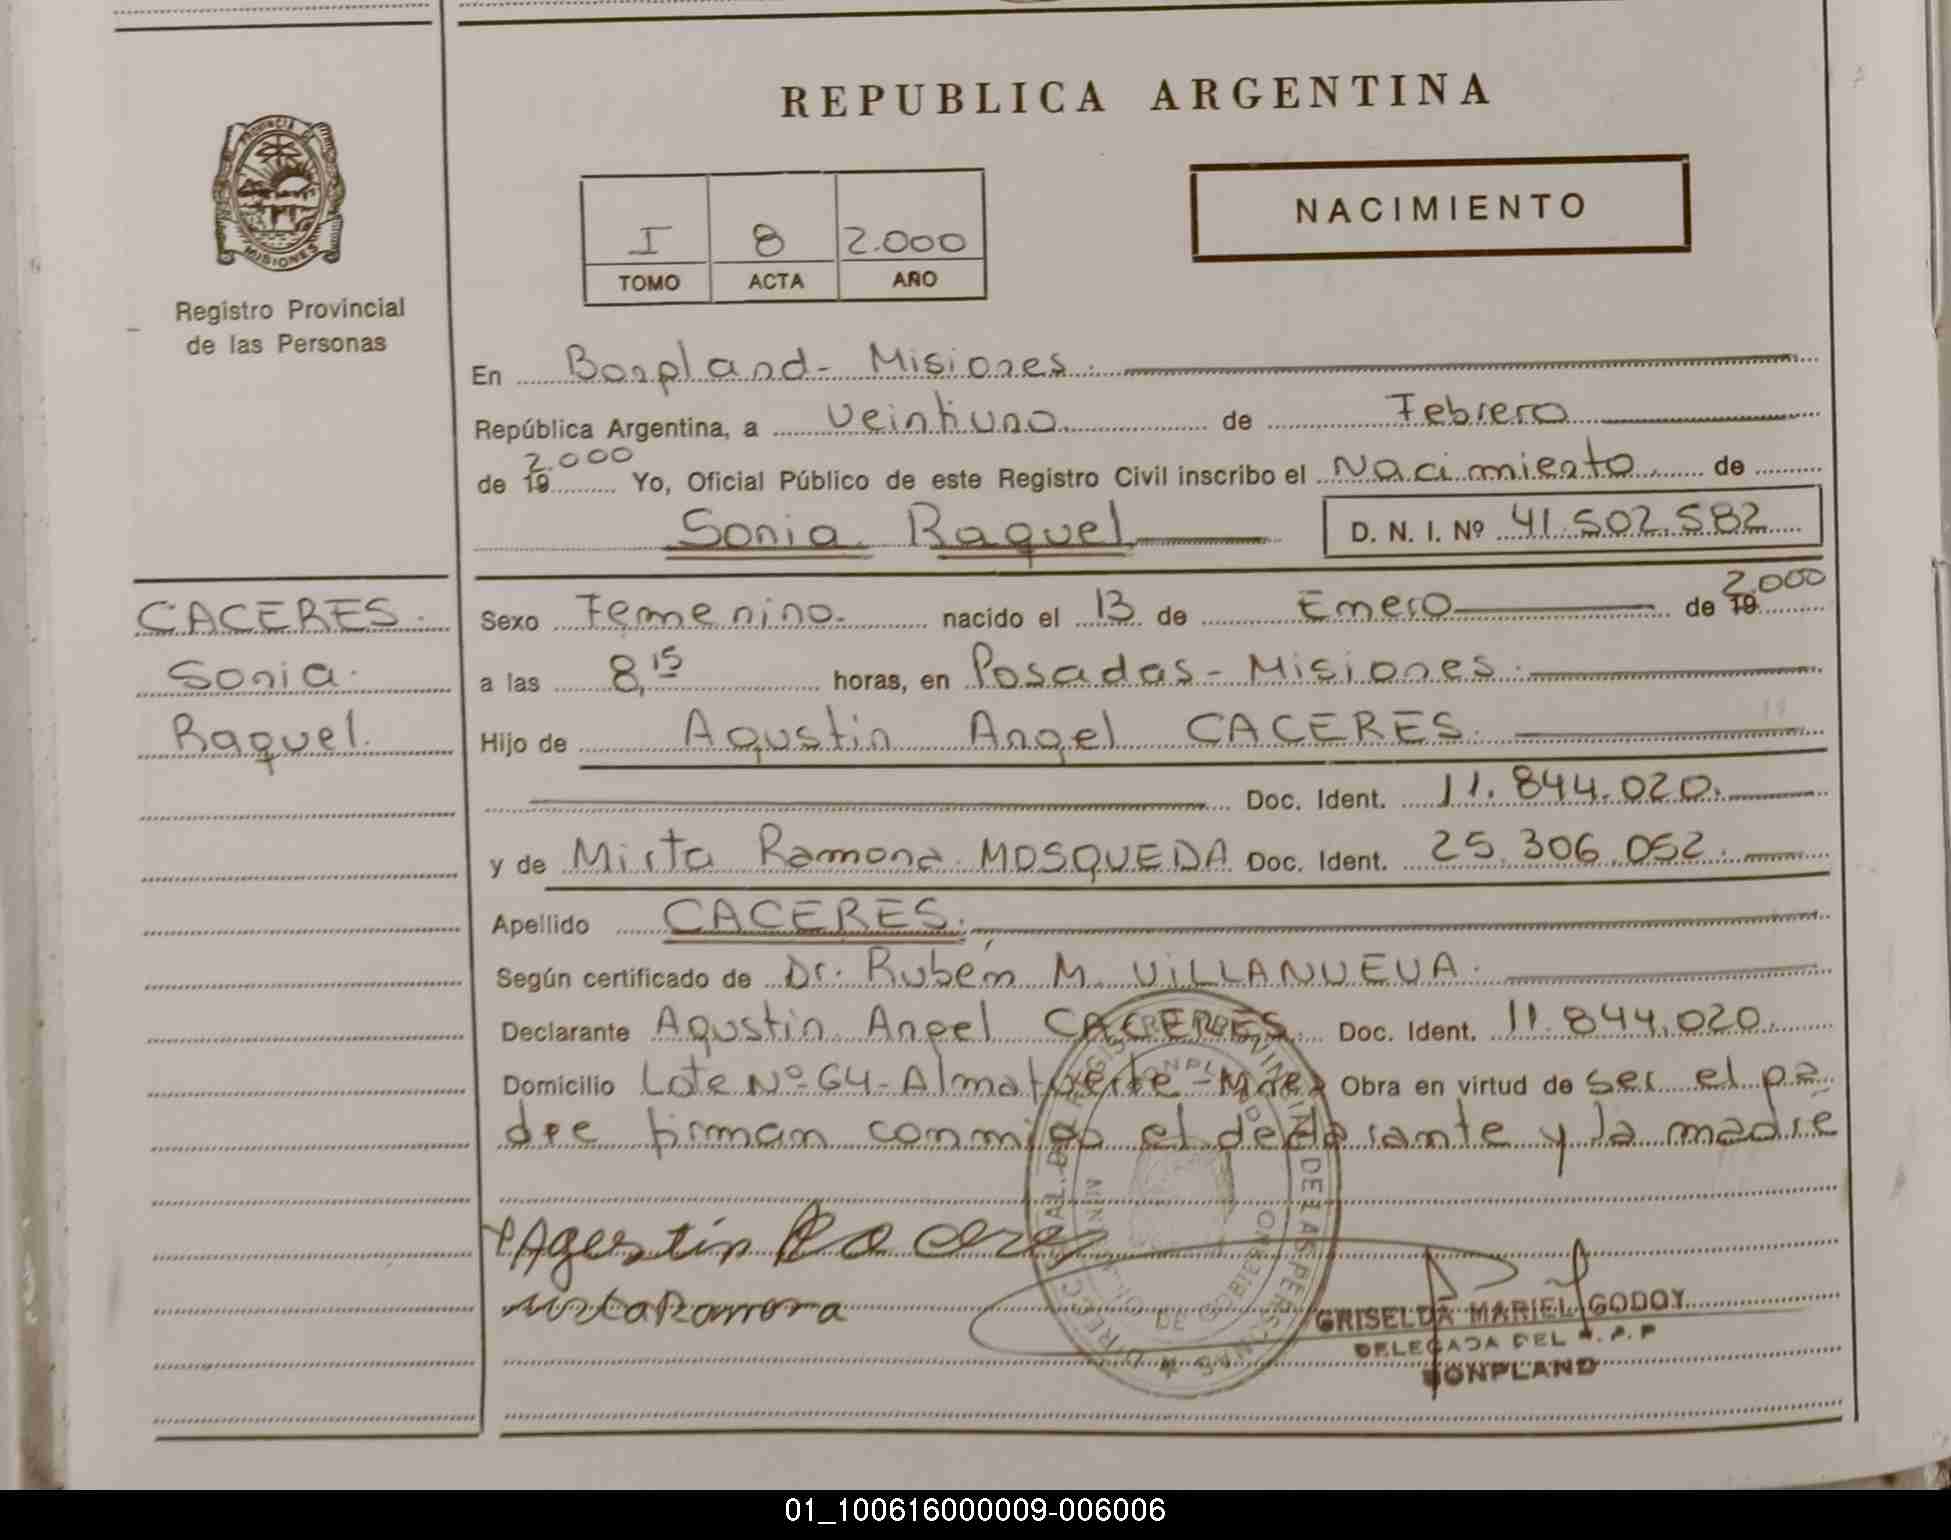 REPUBLICA ARGENTINA
PROVINCIA DE
MISIONES
Registro Provincial
de las Personas
NACIMIENTO
I 8 2.000
TOMO ACTA AÑO
En Bonpland - Misiones.
República Argentina, a veintiuno de Febrero
2.000
de 19 Yo, Oficial Público de este Registro Civil inscribo el Nacimiento de
Sonia Raquel D. N. I. Nº 41.502.582
CACERES.
Sonia
Raquel.
2.000
Sexo Femenino. nacido el 13 de Enero de 19
a las 8,15 horas, en Posadas - Misiones.
Hijo de Agustin Angel CACERES.
Doc. Ident. 11.844.020.
y de Mirta Ramona MOSQUEDA Doc. Ident. 25.306.052.
Apellido CACERES.
Según certificado de Dr. Rubén M. VILLANUEVA.
Declarante Agustin Angel CACERES. Doc. Ident. 11.844.020.
Domicilio Lote Nº 64 - Almafuerte - Mnes Obra en virtud de ser el pa
dre firman conmigo el declarante y la madre
Agustin Caceres
Mirta Ramona
GRISELDA MARIEL GODOY
DELEGADA DEL R. P. P
BONPLAND
01_100616000009-006006